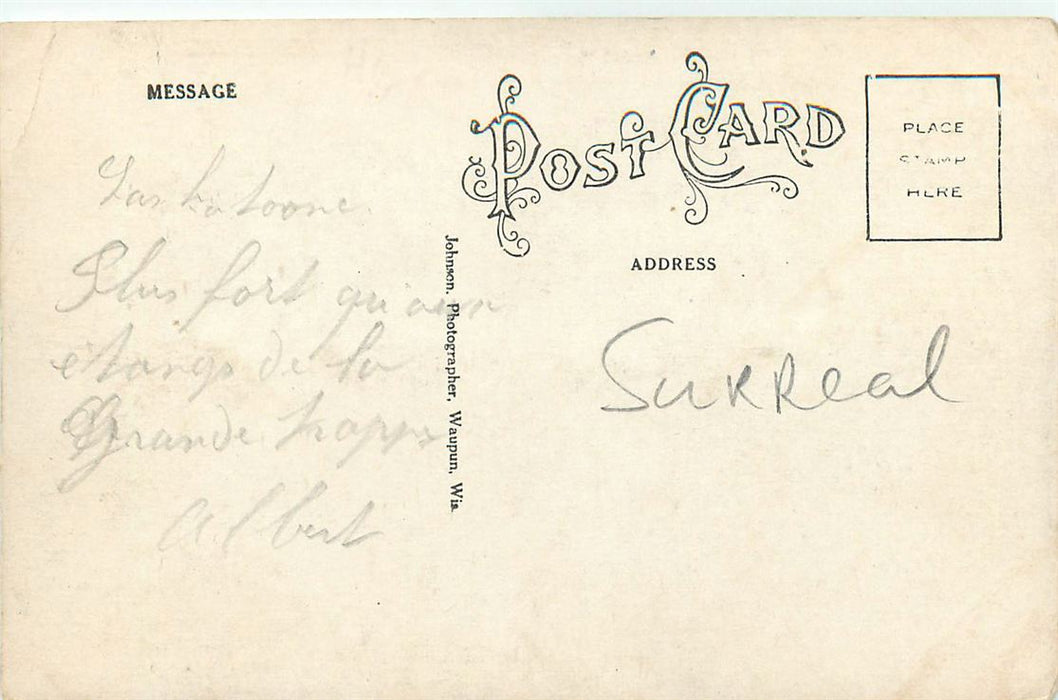 MESSAGE
POST CARD
PLACE
STAMP
HERE
Plus fort qu'aux
étangs de la
Grande
Albert
Johnson, Photographer, Waupun, Wis.
ADDRESS
SuRReal